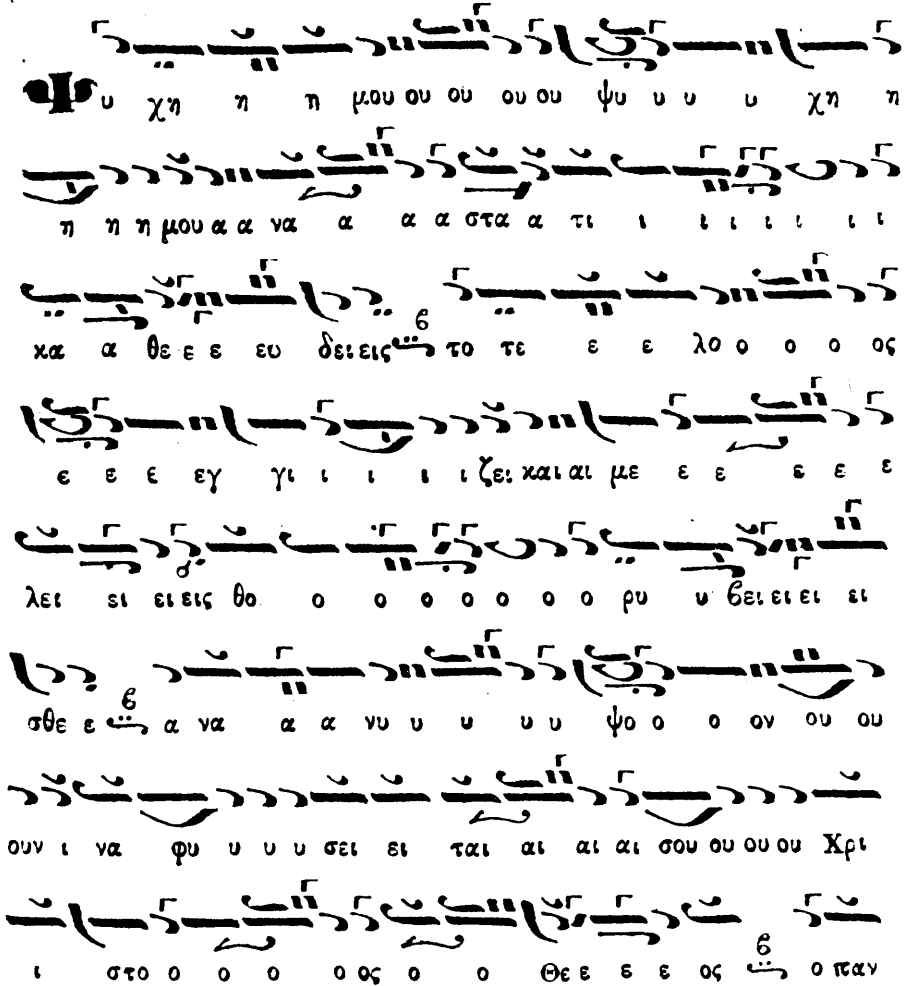 Ψ υ χη η η μου ου ου ου ου ψυ υ υ υ χη η
η η η μου α α να α α α στα α τι ι ι ι ι ι ι ι
κα α θε ε ε ευ δει εις το τε ε ε λο ο ο ο ος
ε ε ε εγ γι ι ι ι ι ζει και αι με ε ε ε ε ε
λει ει ει εις θο ο ο ο ο ο ο ο ρυ υ βει ει ει ει
σθε ε α να α α νυ υ υ υ υ ψο ο ο ον ου ου
ουν ι να φυ υ υ υ σει ει ται αι αι αι σου ου ου ου Χρι
ι στο ο ο ο ο ος ο ο Θε ε ε ε ος ο παν